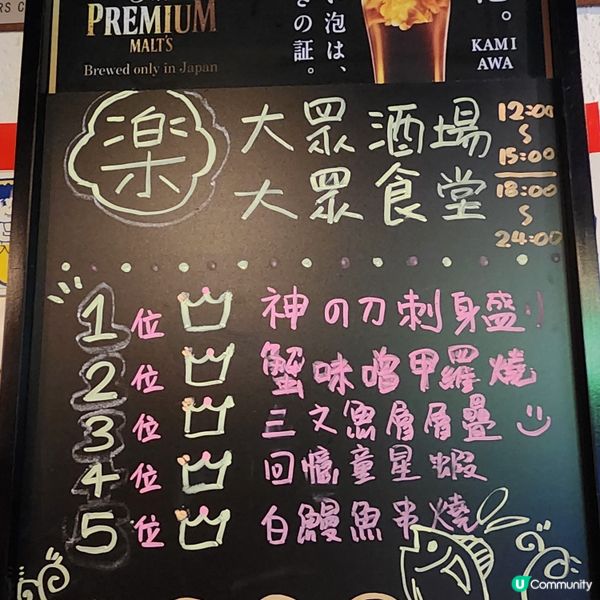 RS C
PREMIUM
MALT'S
Brewed only in Japan
泡は、
の証。
。
KAMI
AWA
楽
大眾酒場
大眾食堂
12:00
~
15:00
18:00
~
24:00
1位 神の刀刺身盛り
2位 蟹味噌甲羅燒
3位 三文魚層層疊
4位 回憶童星蝦
5位 白鰻魚串燒
U Community